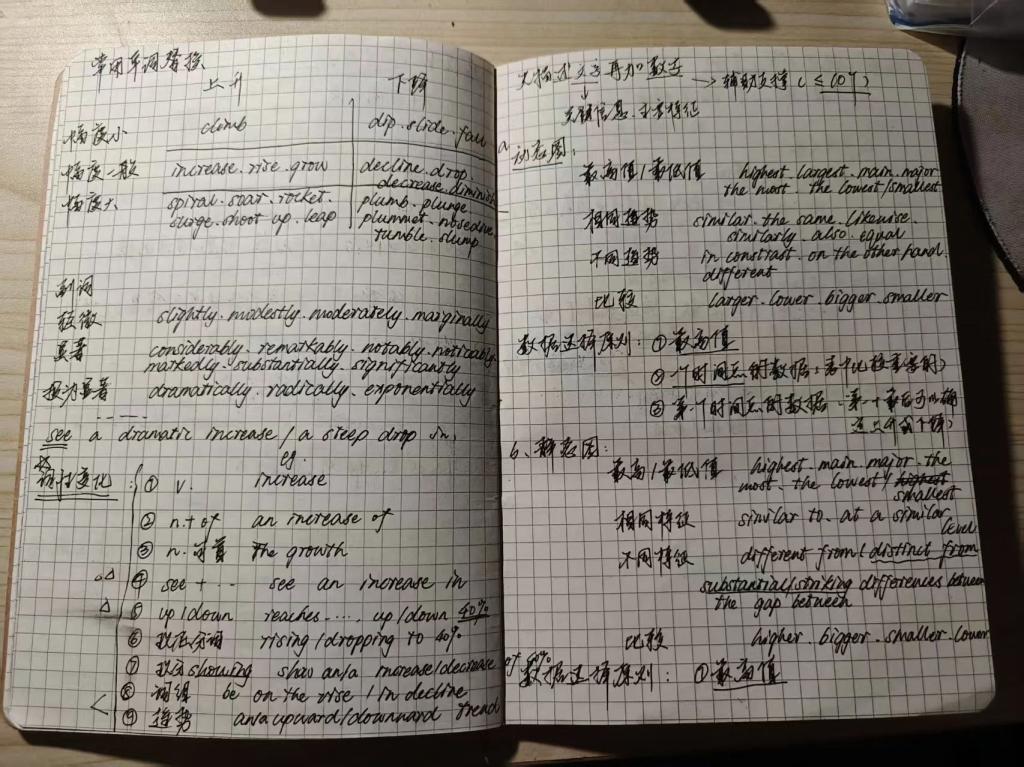 常用单词替换
上升 下降
幅度小 climb dip.slide.fall
幅度一般 increase.rise.grow decline.drop.
decrease.diminish
幅度大 spiral.soar.rocket. plumb.plunge.
surge.shoot up.leap plummet.nosedive.
tumble.slump
副词
轻微 slightly.modestly.moderately.marginally
显著 considerably.remarkably.notably.noticably.
markedly.substantially.significantly
极为显著 dramatically.radically.exponentially
see a dramatic increase / a steep drop in.
eg.
词性变化:
① v. increase
② n.+of an increase of
③ n. the growth
④ see+... see an increase in
⑤ up/down reaches..... up/down 40%
⑥ 现在分词 rising/dropping to 40%
⑦ showing show an/a increase/decrease of 40%
⑧ 词组 be on the rise / in decline
⑨ 趋势 an/a upward/downward trend
先描述文字再加数字 → 辅助支撑 (≤10个)
↓
关键信息.主要特征
a 动态图:
最高值/最低值 highest.largest.main.major.
the most.the lowest/smallest
相同趋势 similar.the same.likewise.
similarly.also.equal
不同趋势 in constrast.on the other hand.
different
比较 larger.lower.bigger.smaller
数据选择原则: ①最高值
②一个时间点的数据
③第一个时间点的数据
b、静态图:
最高/最低值 highest.main.major.the
most.the lowest/ highest
smallest
相同特征 similar to.at a similar
level
不同特征 different from/distinct from
substantial/striking differences between
the gap between
比较 higher.bigger.smaller.lower
数据选择原则: ①最高值